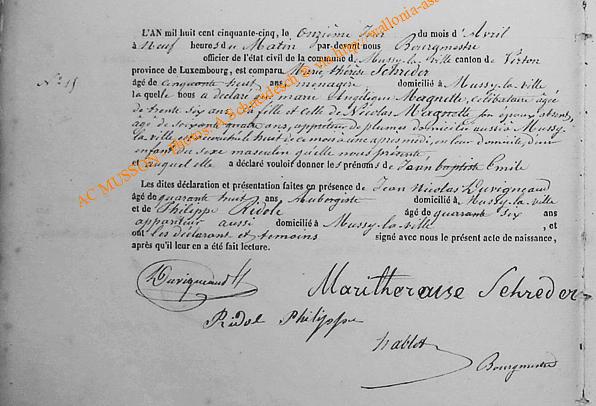 L'AN mil huit cent cinquante-cinq, le onzième jour du mois d'Avril
à Neuf heures du Matin par-devant nous Bourgmestre
officier de l'état civil de la commune de Mussy-la-Ville canton de Virton
N° 15 province de Luxembourg, est comparu Marie Thérèse Schreder
âgé de cinquante neuf ans ménagère domicilié à Mussy-la-Ville
laquelle nous a déclaré que marie Angélique Magnette, célibataire, âgée
de trente six ans, sa fille et celle de Nicolas Magnette son époux absent,
âgé de soixante quatre ans, appreteur de plumes domicilié aussi à Mussy-
la-Ville, est accouchée le huit de ce mois à une après midi, en leur domicile, d'un
enfant du sexe masculin qu'elle nous présente,
et auquel elle a déclaré vouloir donner les prénoms de Jean baptiste Emile
Les dites déclaration et présentation faites en présence de Jean Nicolas Duvigneaud
âgé de quarante huit ans Aubergiste domicilié à Mussy-la-Ville
et de Philippe Ridole âgé de quarante six ans
appariteur aussi domicilié à Mussy-la-Ville, et
ont les déclarant et témoins signé avec nous le présent acte de naissance,
après qu'il leur en a été fait lecture.
Duvigneaud
Maritheraise Schreder
Ridol Philippe
Bourgmestre
AC MUSSON - Photos: A. Schandesch © via http://wallonia-as